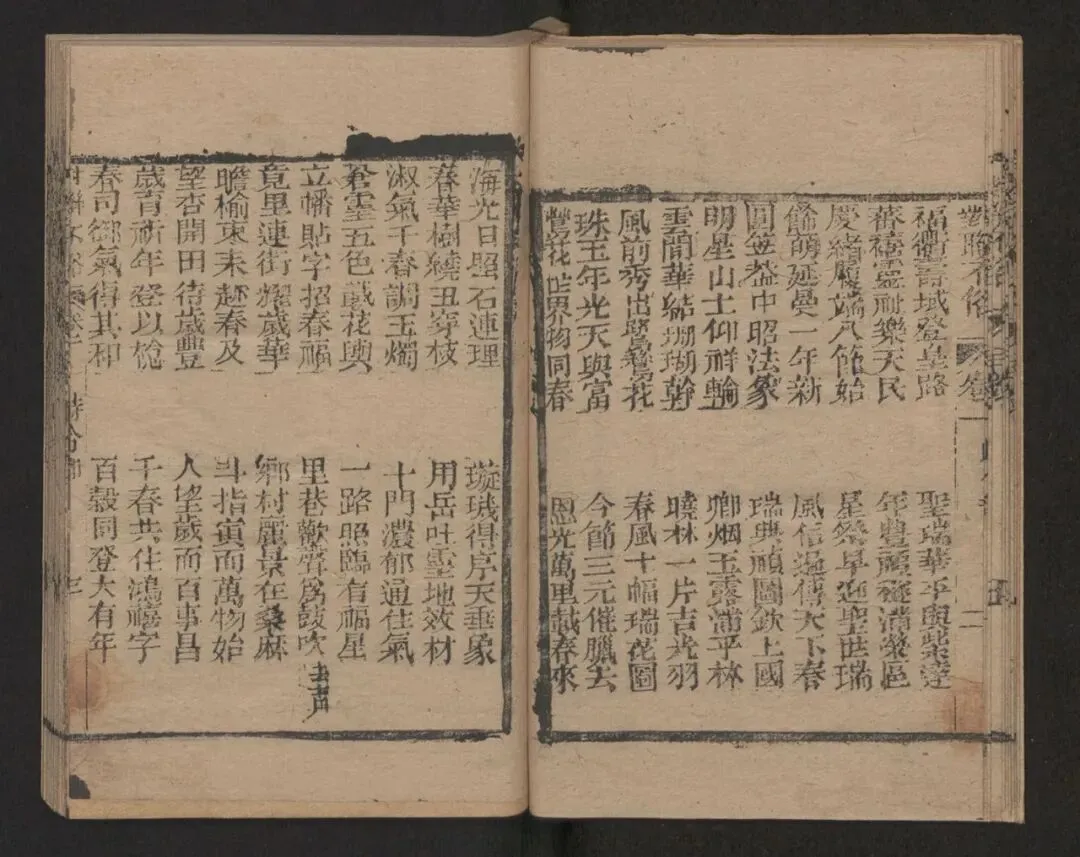 對聯不俗 卷一
福衢壽域登皇路
蕃禧靈祉樂天民
慶緒履端八節始
餘萌延曼一年新
圓益中昭法象
明星山土仰祥輪
雲間華結珊瑚幹
風前秀出鴛鴦花
珠玉年光天與富
鶯花世界物同春
聖瑞華平與紫達
年豐滿榮區
星祭早迎聖世瑞
風信遍傳天下春
瑞典頑圖欽上國
卿烟玉露滿平林
曉林一片吉光羽
春風十幅瑞花圖
今節三元催臘去
恩光萬里載春來
海光日照石連理
春華樹繞丑穿枝
淑氣千春調玉燭
雲五色戴花輿
立幡貼字招春福
竟里連街耀歲華
瞻榆束耒趂春及
望杏開田待歲豐
歲育祈年登以梲
春司御氣得其和
璇璣得序天垂象
用岳吐靈地效材
十門濃郁通佳氣
一路照臨有福星
里巷歡聲為鼓吹 去声
鄉村麗景在桑麻
斗指寅而萬物始
人望歲而百事昌
千春共住鴻禧字
百穀同登大有年